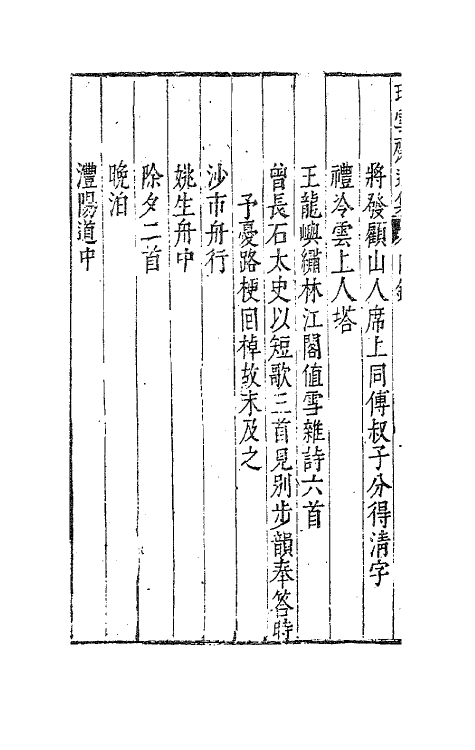 將發顧山人席上同傅叔子分得清字
禮冷雲上人塔
王龍嶼繡林江閣值雪雜詩六首
曾長石太史以短歌三首見別步韻奉答時
予憂路梗回棹故末及之
沙市舟行
姚生舟中
除夕二首
晚泊
澧陽道中